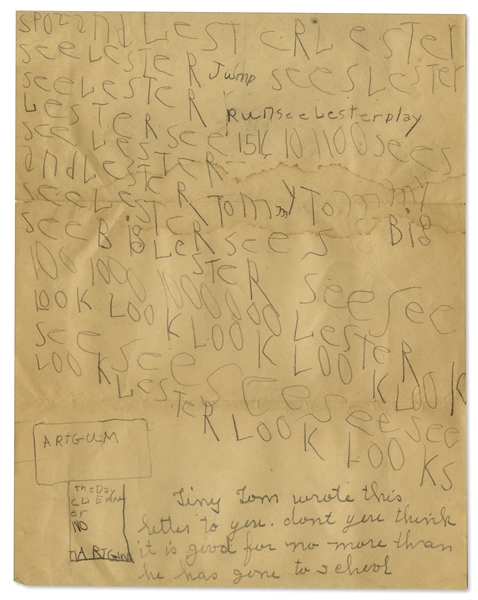 spot and LESTER LESTER
see LESTER Jump sees LESTER
see LESTER
LESTER Runsee Lesterplay
see LESTER see 15K 10 1100 sees
and LESTER
see LESTER Tommy Tommy
see Big LESTER sees Big
100 1000
100K LOOK LOOK see see
see see LOOK LESTER
LOOK LESTER see see see LOOK
LOOK LOOKS
ARTGUM
The Day
CLEANER
or
NO
ARTGUM
Tiny Tom wrote this
letter to you. dont you think
it is good for no more than
he has gone to school